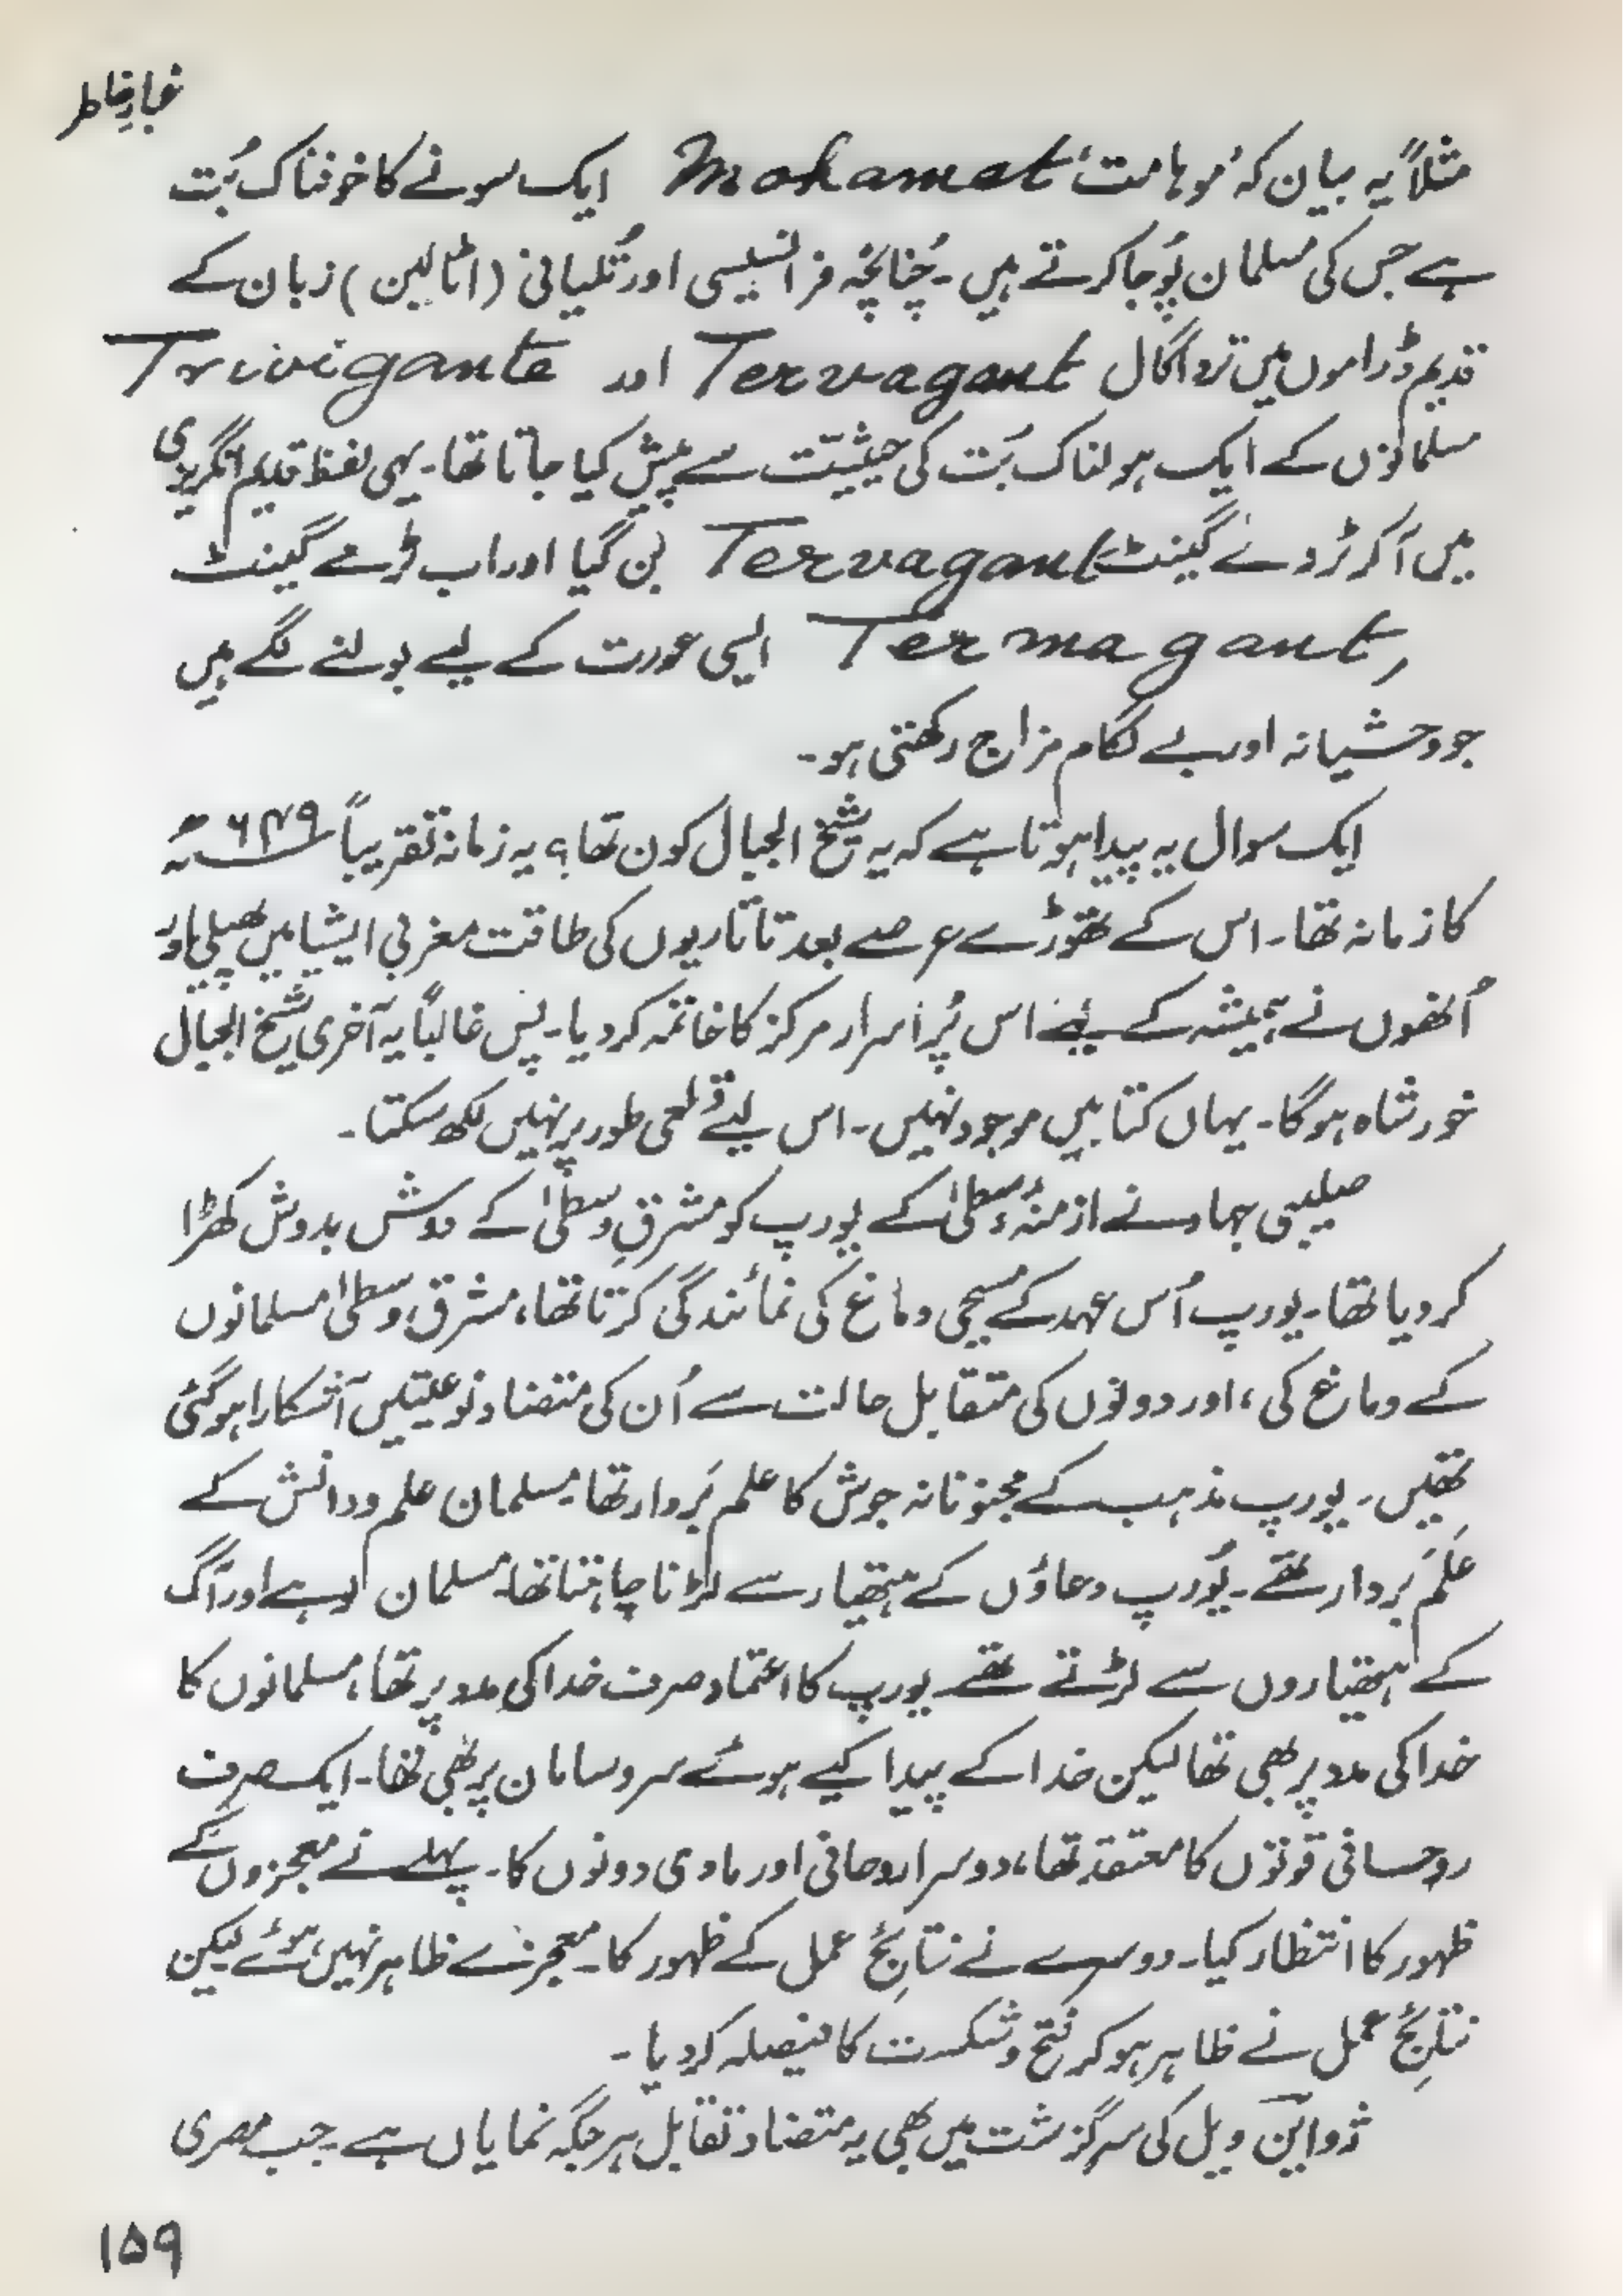 غبارِ خاطر
مثلاً یہ بیان کہ ’موہامت‘ Mohamet ایک سونے کا خوفناک بُت
ہے جس کی مسلمان پُوجا کرتے ہیں۔ چُنانچہ فرانسیسی اور تُلیانی (اٹالین) زبان کے
قدیم ڈراموں میں ترواگاں Tervagant اور Trivigante
مسلمانوں کے ایک ہولناک بُت کی حیثیّت سے پیش کیا جاتا تھا۔ یہی لفظ قدیم انگریزی
میں آ کر ٹروے گینٹ Tervagant بن گیا اور اب ٹرمے گینٹ
Termagant, ایسی عورت کے لیے بولنے لگے ہیں
جو وحشیانہ اور بے لگام مزاج رکھتی ہو۔
ایک سوال یہ پیدا ہوتا ہے کہ یہ شیخ الجبال کون تھا؟ یہ زمانہ تقریباً ۶۴۹ھ
کا زمانہ تھا۔ اس کے تھوڑے عرصے بعد تاتاریوں کی طاقت مغربی ایشیا میں پھیلی اور
اُنھوں نے ہمیشہ کے لیے اس پُراسرار مرکز کا خاتمہ کر دیا۔ پس غالباً یہ آخری شیخ الجبال
خور شاہ ہوگا۔ یہاں کتابیں موجود نہیں۔ اس لیے قطعی طور پر نہیں لکھ سکتا۔
صلیبی جہاد نے ازمنۂ وسطیٰ کے یورپ کو مشرقِ وسطیٰ کے دوش بدوش کھڑا
کر دیا تھا۔ یورپ اُس عہد کے مسیحی دماغ کی نمائندگی کرتا تھا، مشرقِ وسطیٰ مسلمانوں
کے دماغ کی، اور دونوں کی متقابل حالت سے اُن کی متضاد نوعیتیں آشکارا ہو گئی
تھیں۔ یورپ مذہب کے مجنونانہ جوش کا علم بَردار تھا مسلمان علم و دانش کے
عَلَم بَردار تھے۔ یُورپ دعاؤں کے ہتھیار سے لڑنا چاہتا تھا مسلمان لوہے اور آگ
کے ہتھیاروں سے لڑتے تھے۔ یورپ کا اعتماد صرف خدا کی مدد پر تھا، مسلمانوں کا
خدا کی مدد پر بھی تھا لیکن خدا کے پیدا کیے ہوئے سروسامان پر بھی تھا۔ ایک صرف
روحانی قوتوں کا معتقد تھا، دوسرا روحانی اور مادی دونوں کا۔ پہلے نے معجزوں کے
ظہور کا انتظار کیا۔ دوسرے نے نتائجِ عمل کے ظہور کا۔ معجزے ظاہر نہیں ہوئے لیکن
نتائجِ عمل نے ظاہر ہو کر فتح و شکست کا فیصلہ کر دیا۔
ژواین ویل کی سرگزشت میں بھی یہ متضاد تقابل ہر جگہ نمایاں ہے۔ جب مصری
۱۵۹